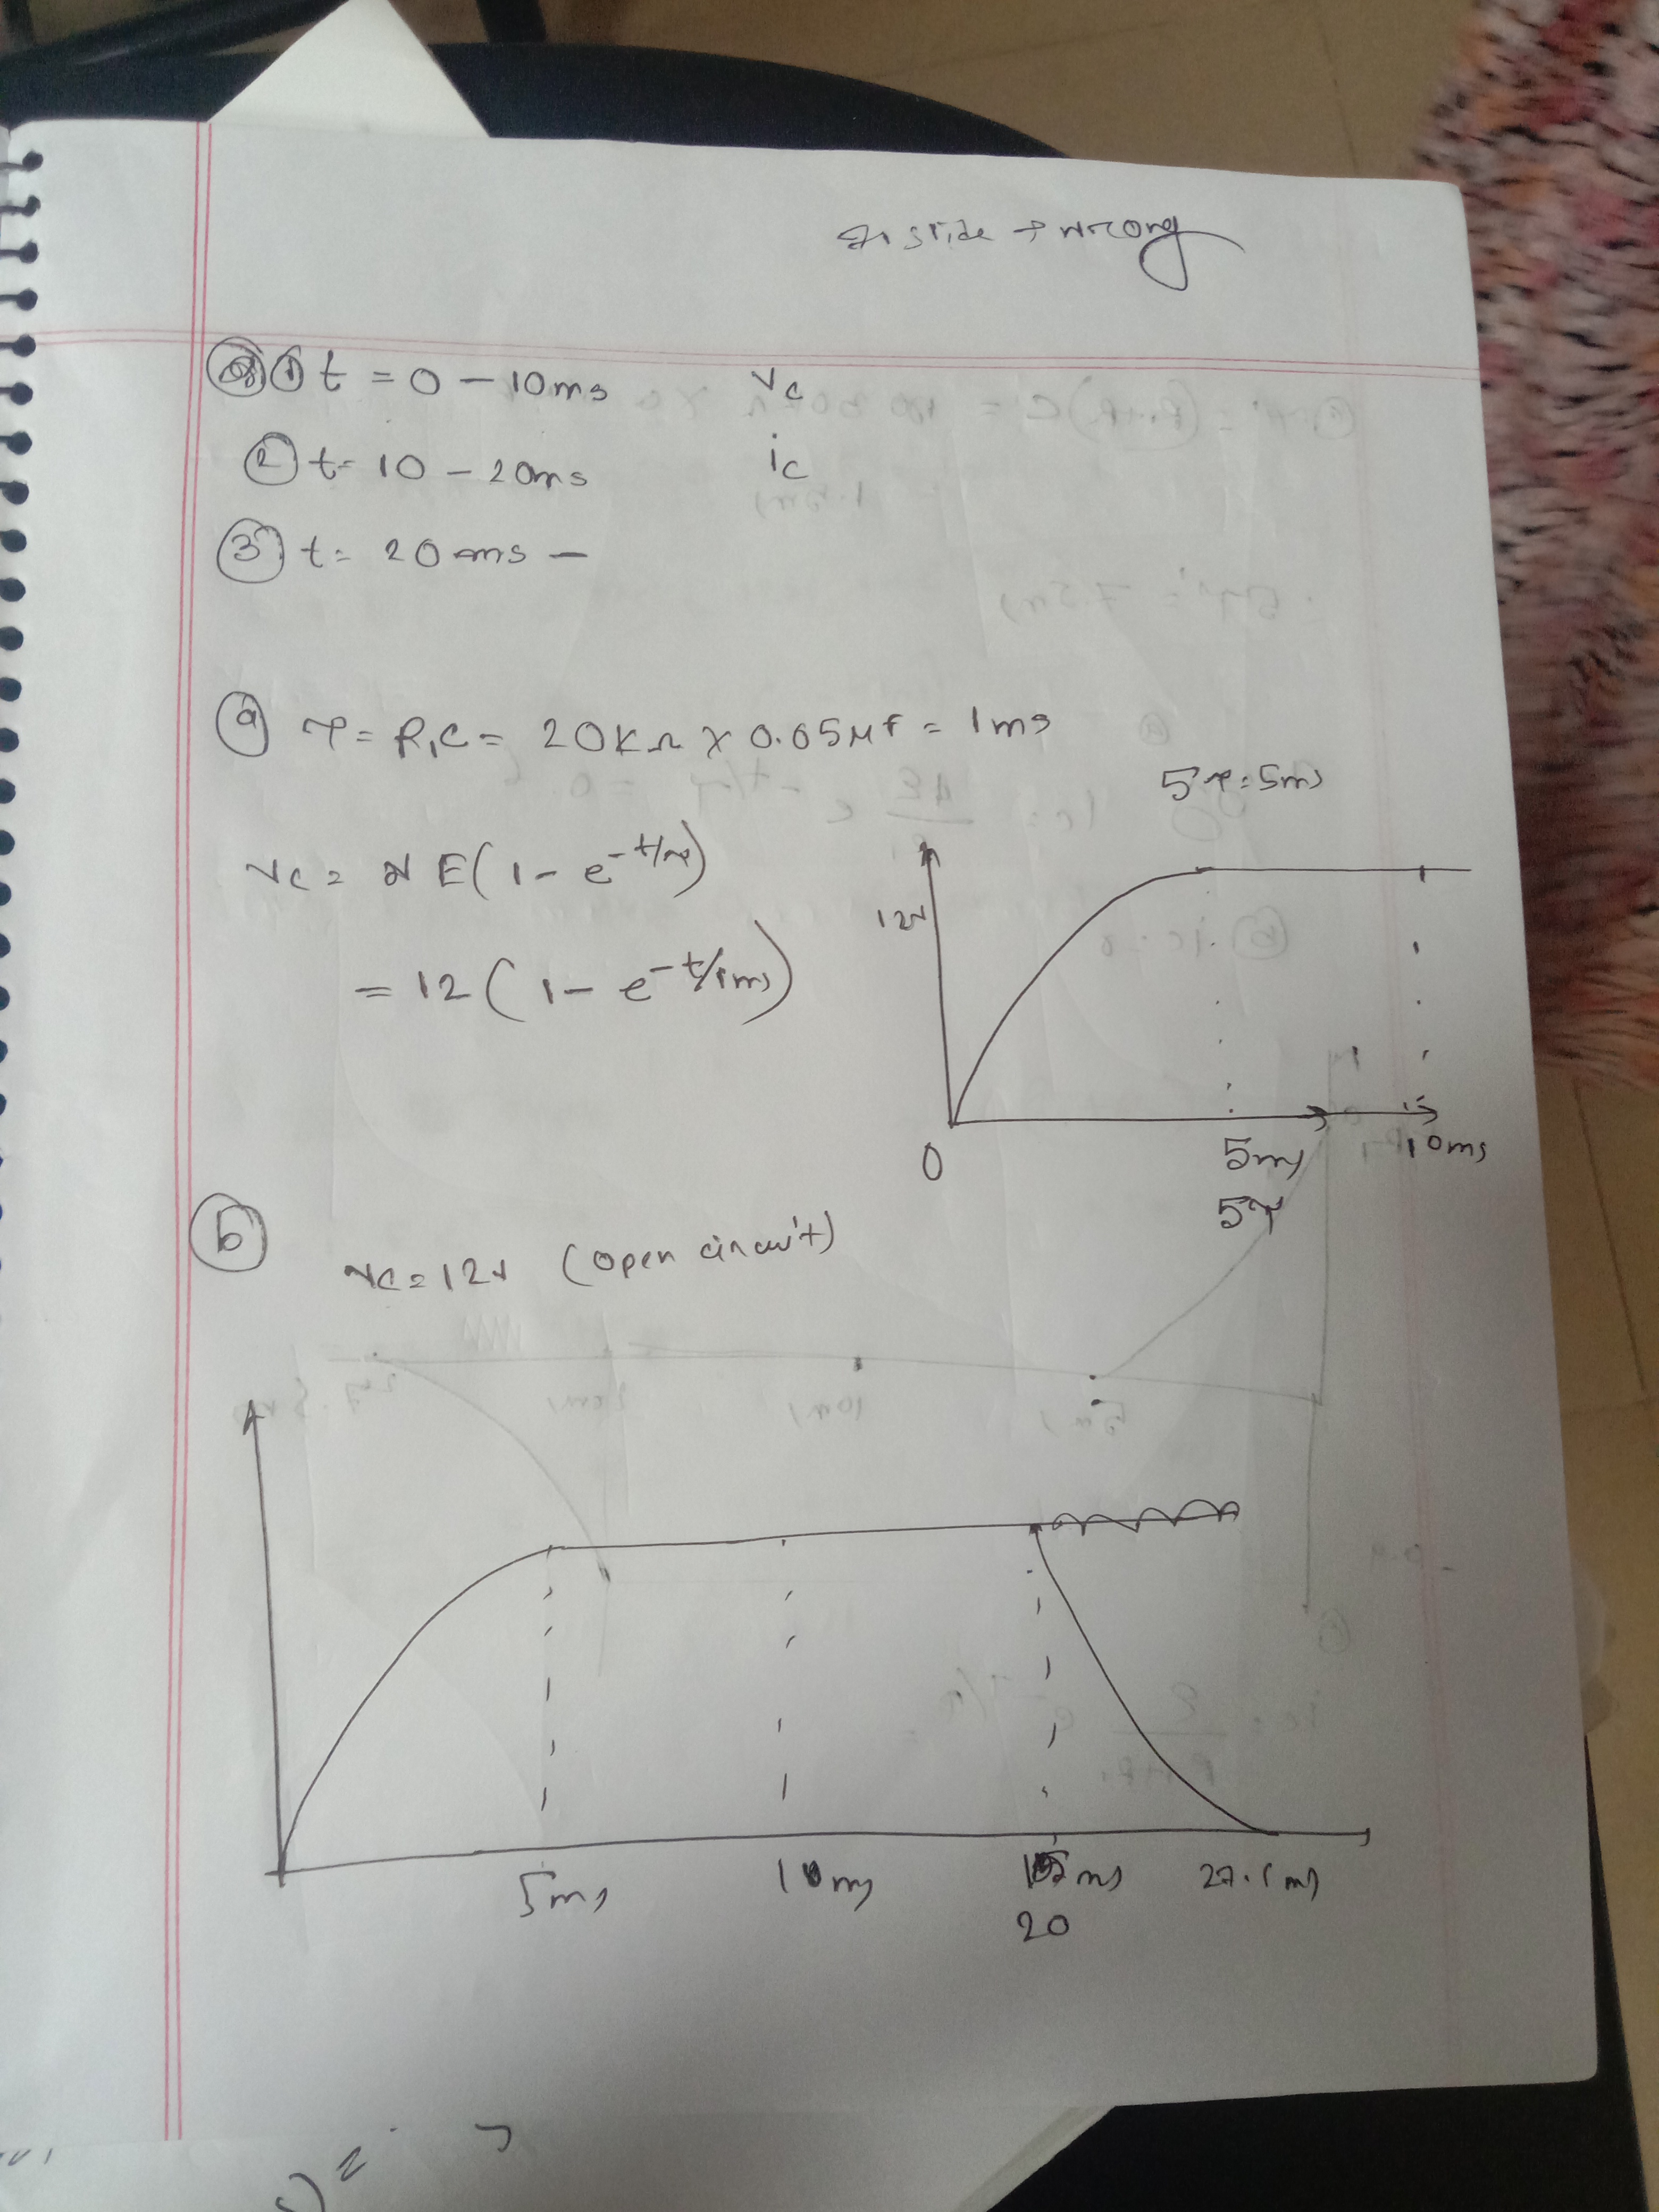 slide → wrong
① t = 0 – 10ms    vc
② t = 10 – 20ms    ic
③ t = 20ms –
ⓐ τ = R₁C = 20KΩ × 0.05μf = 1ms
5τ = 5ms
vc = E(1 – e^-t/τ)
= 12(1 – e^-t/1ms)
12v
0    5ms    10ms
5τ
ⓑ
vc = 12v (open circuit)
5ms    10ms    ms    27.5ms
20